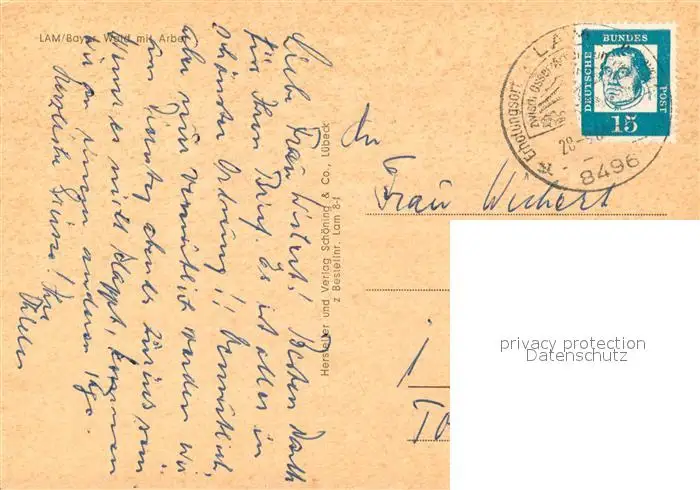 LAM/Bayer. Wald mit Arber
Liebe Frau Wichert! Besten Dank
für Ihren Brief. Es ist alles in
schönster Ordnung!! Vermutlich,
aber nur vermutlich werden wir
am Dienstag abend zurück sein
Wenn es nicht klappt, kommen
wir an einem anderen Tage.
Herzliche Grüsse! Ihre
Hersteller und Verlag Schöning & Co., Lübeck
z Bestellnr. Lam 8-f
An
Frau Wichert
i
LAM
Erholungsort
zwisch. Osser
8496
DEUTSCHE
BUNDES
POST
15
privacy protection
Datenschutz